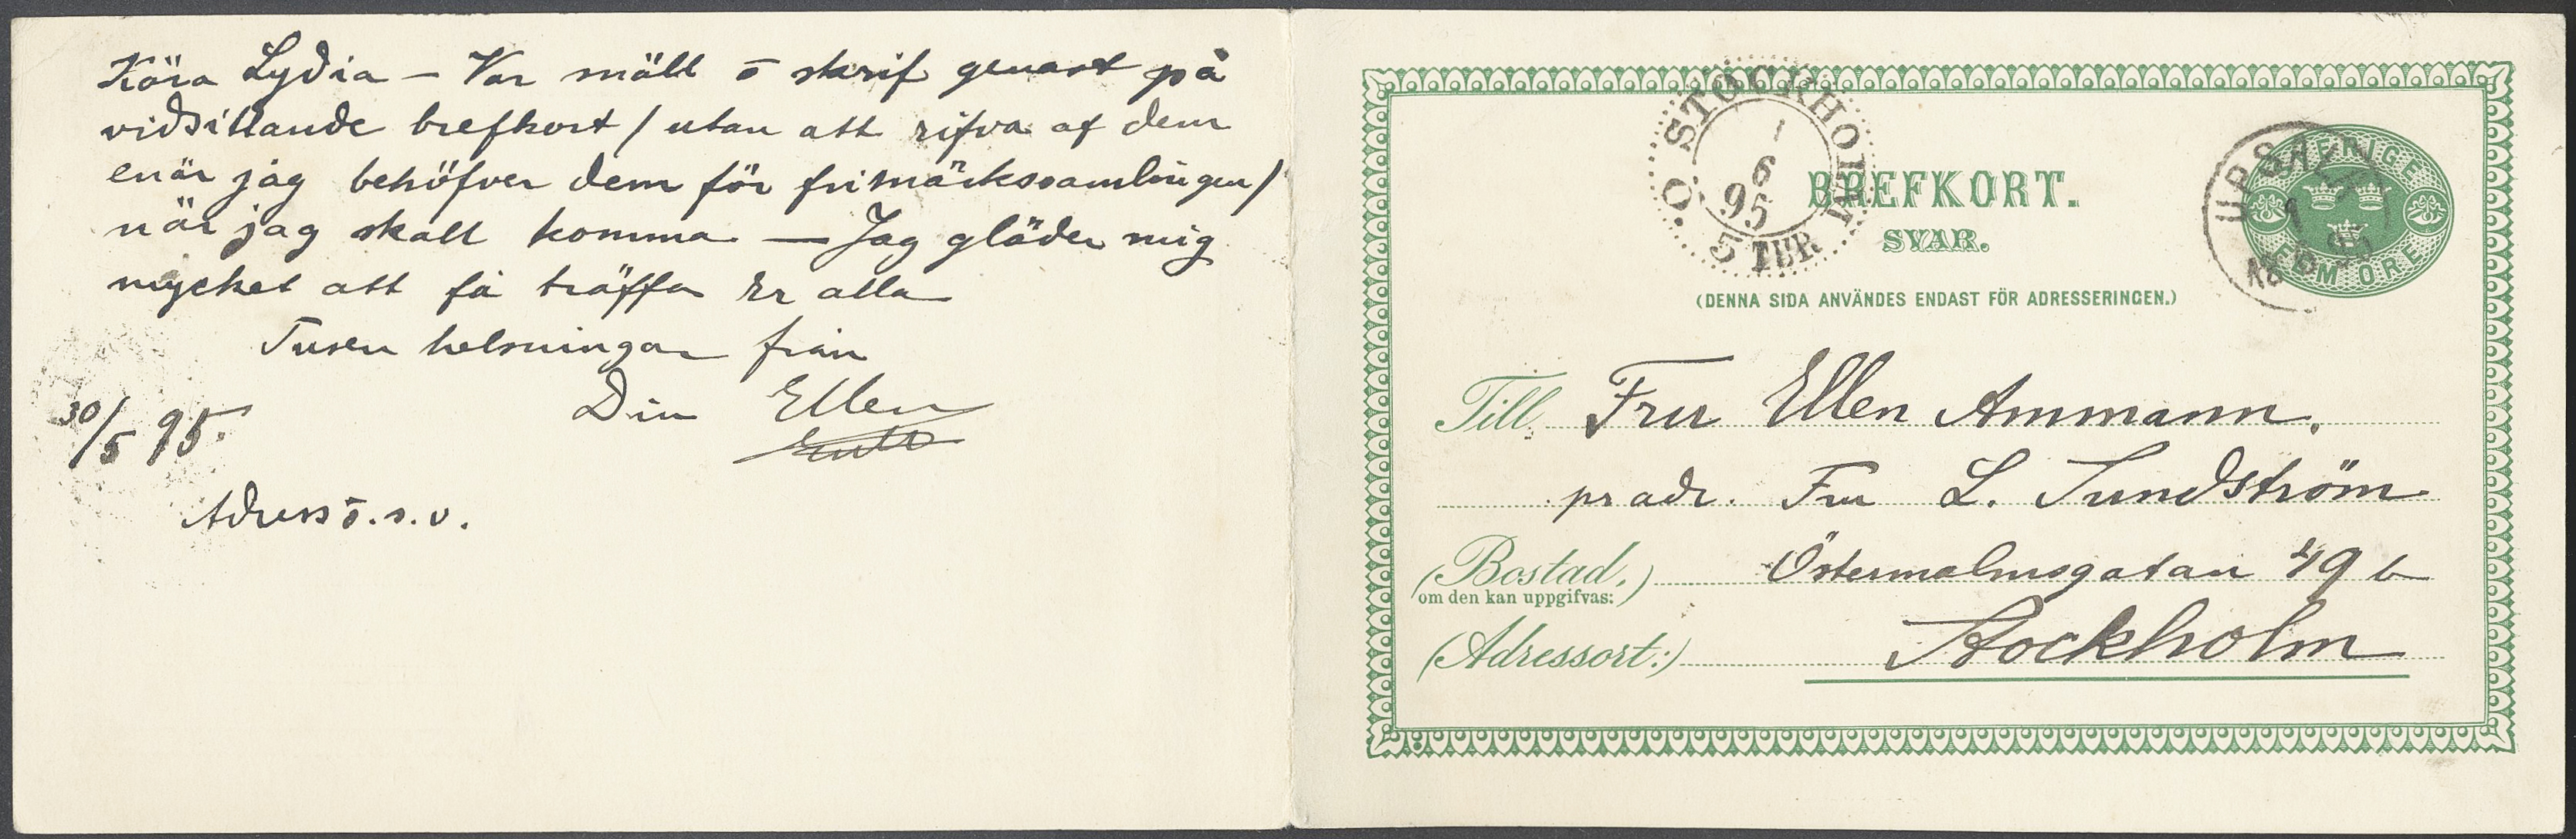 Kära Lydia – Var snäll o skrif genast på
vidsittande brefkort / utan att rifva af dem
enär jag behöfver dem för frimärkssamlingen /
när jag skall komma — Jag gläder mig
mycket att få träffa Er alla
Tusen helsningar från
Din Ellen
30/5 95.
Adress o.s.v.
STOCKHOLM O.
1
6
95
5 TUR
BREFKORT.
SVAR.
(DENNA SIDA ANVÄNDES ENDAST FÖR ADRESSERINGEN.)
UPSALA
1
95
SVERIGE
FEM ÖRE
Till Fru Ellen Ammann.
pr adr. Fru L. Sundström
(Bostad.) Östermalmsgatan 49 b
om den kan uppgifvas:
(Adressort:) Stockholm